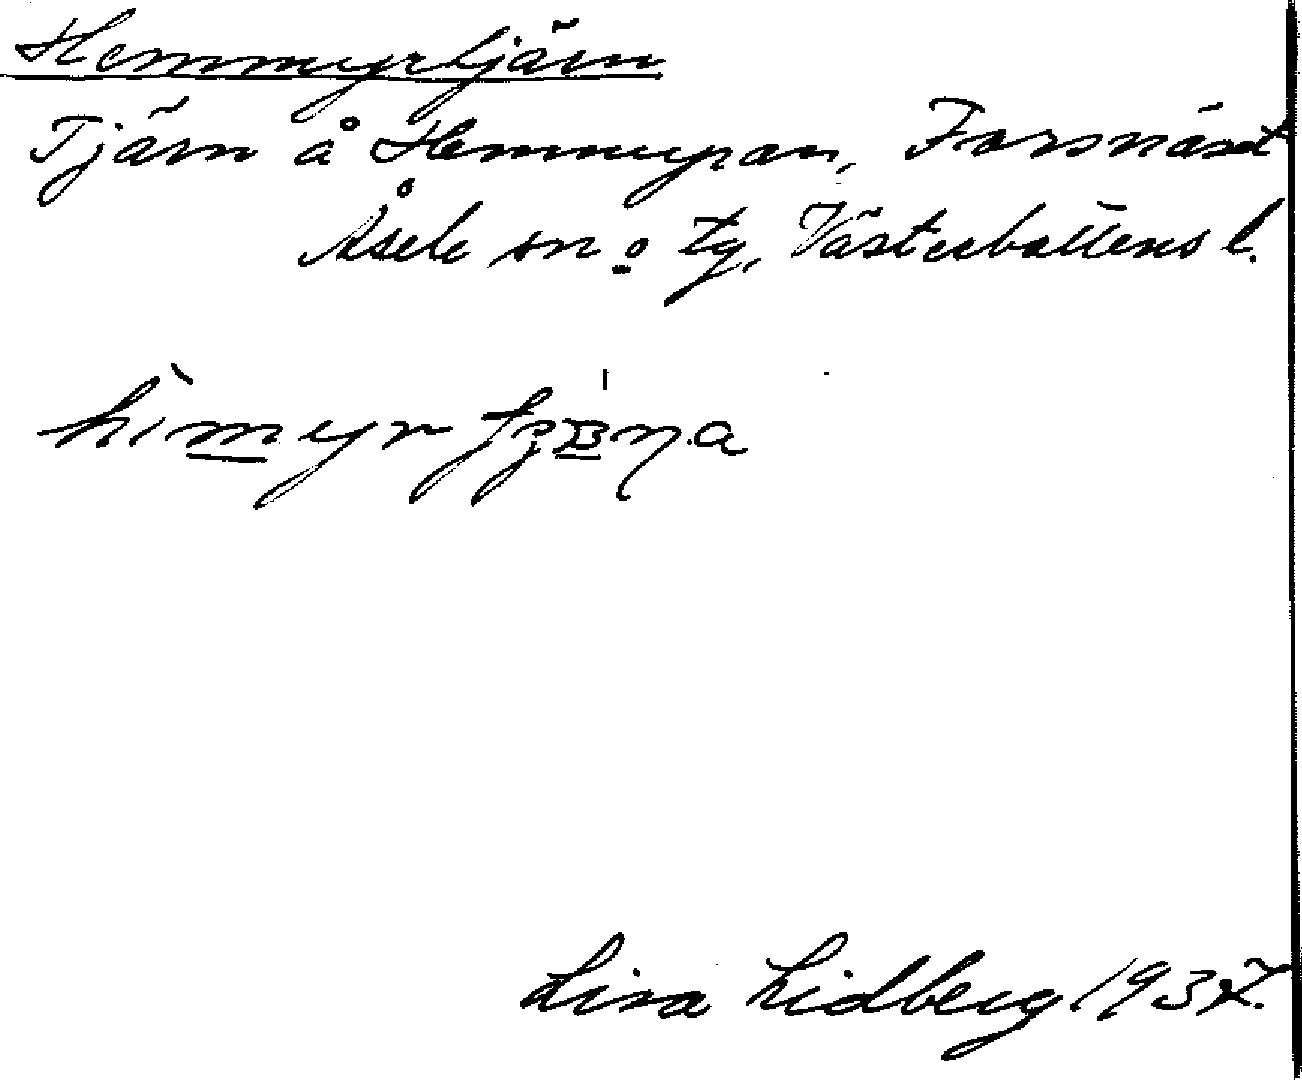 Hemmyrtjärn
Tjärn å Hemmyran, Forsnäset
Åsele sn o tg, Västerbottens l.
Lisa Lidberg 1937.